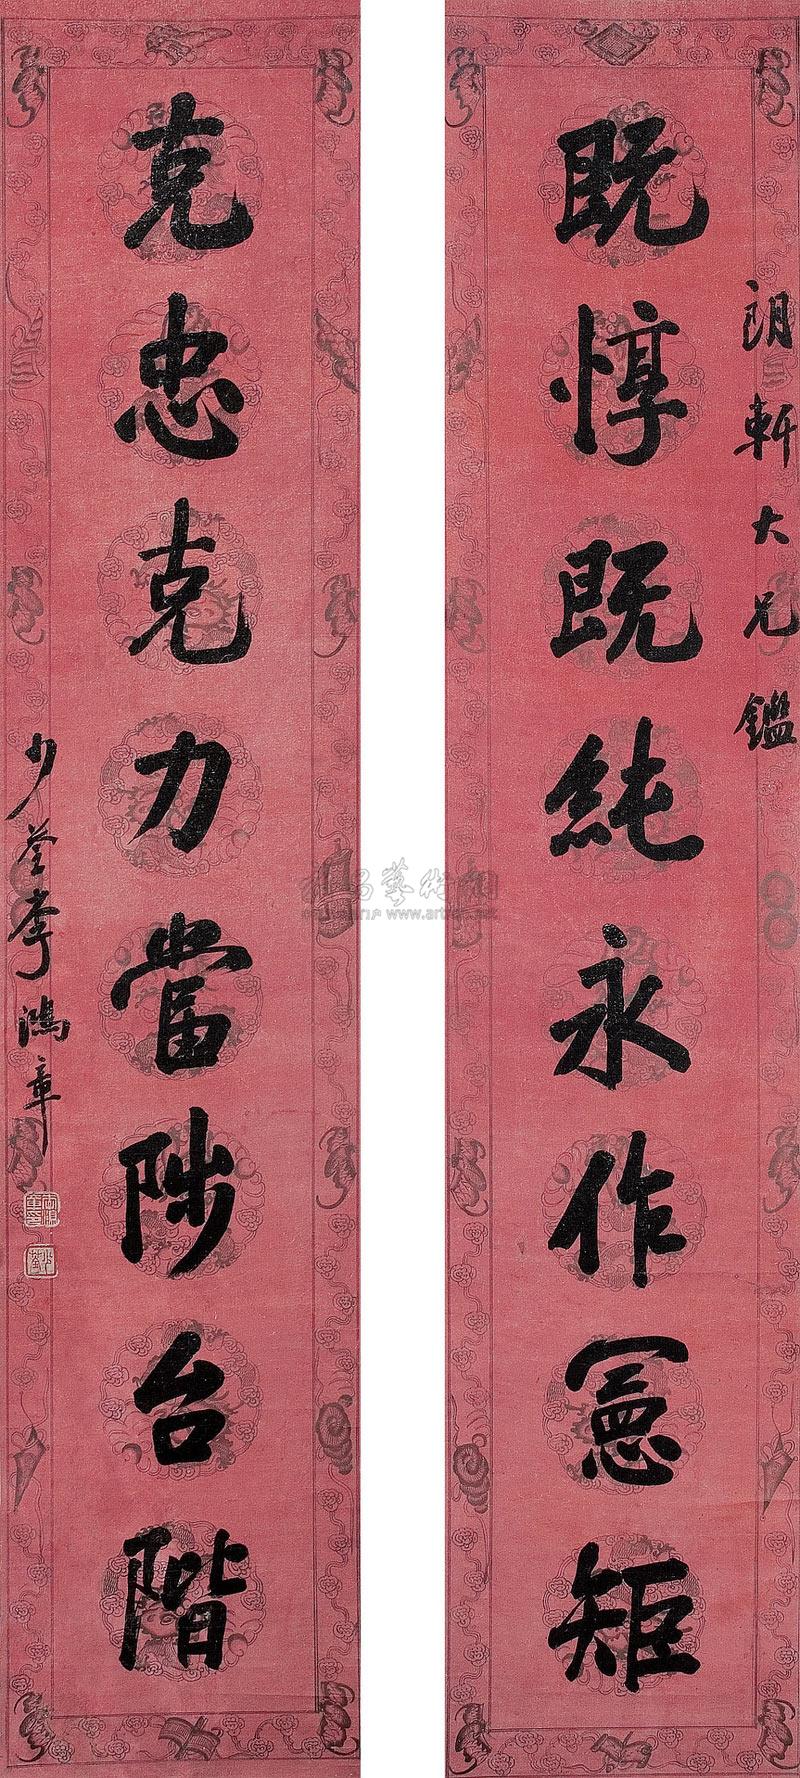 朗軒大兄鑑
既惇既純永作憲矩
克忠克力當陟台階
少荃李鴻章
www.artron.net